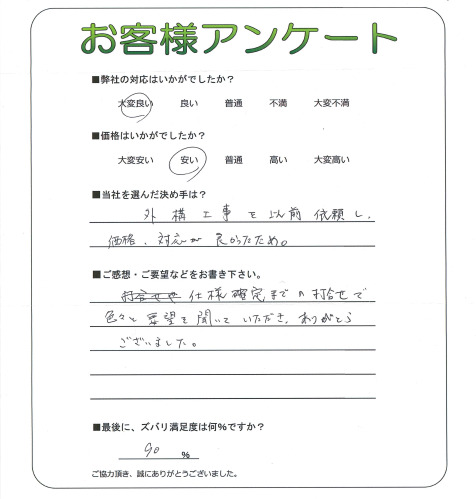 お客様アンケート
■弊社の対応はいかがでしたか？
大変良い 良い 普通 不満 大変不満
■価格はいかがでしたか？
大変安い 安い 普通 高い 大変高い
■当社を選んだ決め手は？
外構工事を以前依頼し、
価格、対応が良かったため。
■ご感想・ご要望などをお書き下さい。
打合せや 仕様確定までの打合せで
色々と要望を聞いていただき、ありがとう
ございました。
■最後に、ズバリ満足度は何％ですか？
90 ％
ご協力頂き、誠にありがとうございました。